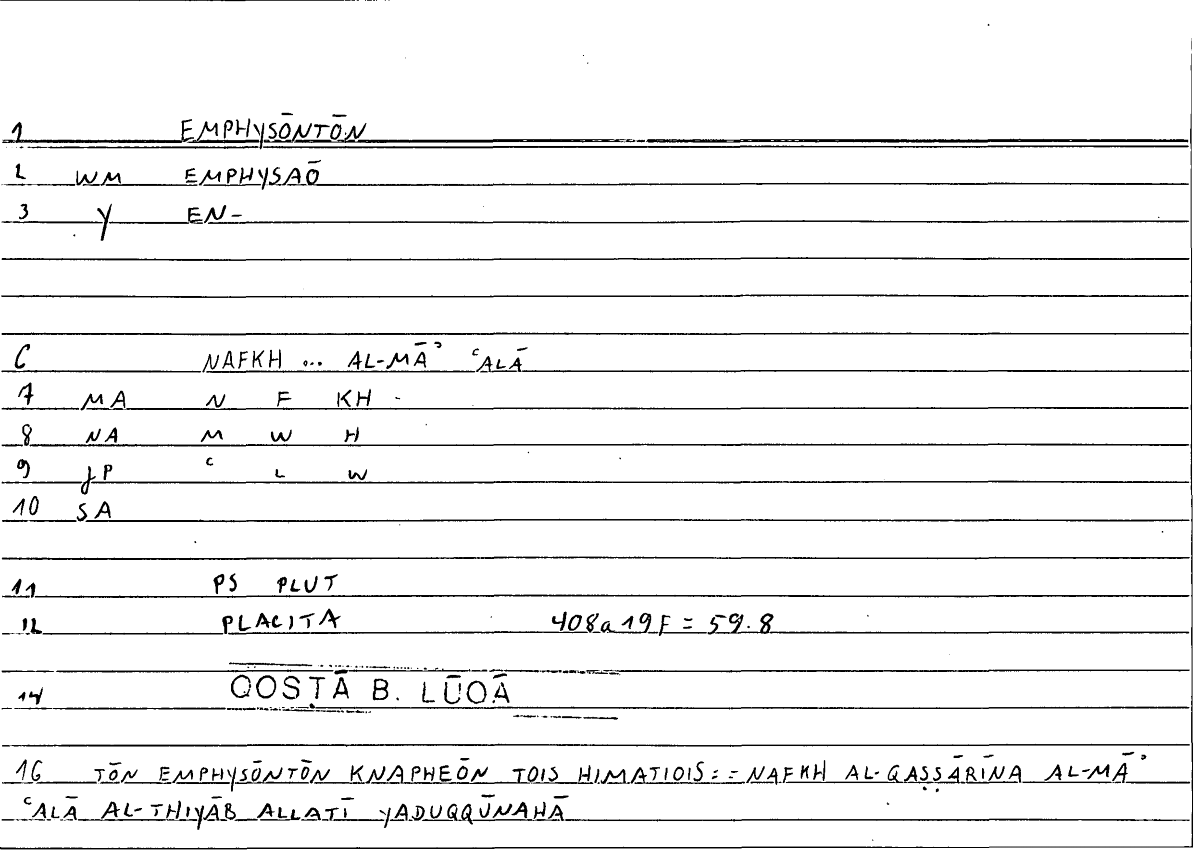 1 EMPHYSŌNTŌN
2 WM EMPHYSAŌ
3 Y EN-
6 NAFKH ... AL-MĀʾ ʿALĀ
7 MA N F KH
8 NA M W H
9 JP ʿ L W
10 SA
11 PS PLUT
12 PLACITA 408a19F = 59.8
14 QOSṬĀ B. LŪQĀ
16 TŌN EMPHYSŌNTŌN KNAPHEŌN TOIS HIMATIOIS: = NAFKH AL-QAṢṢĀRĪNA AL-MĀʾ
ʿALĀ AL-THIYĀB ALLATĪ YADUQQŪNAHĀ